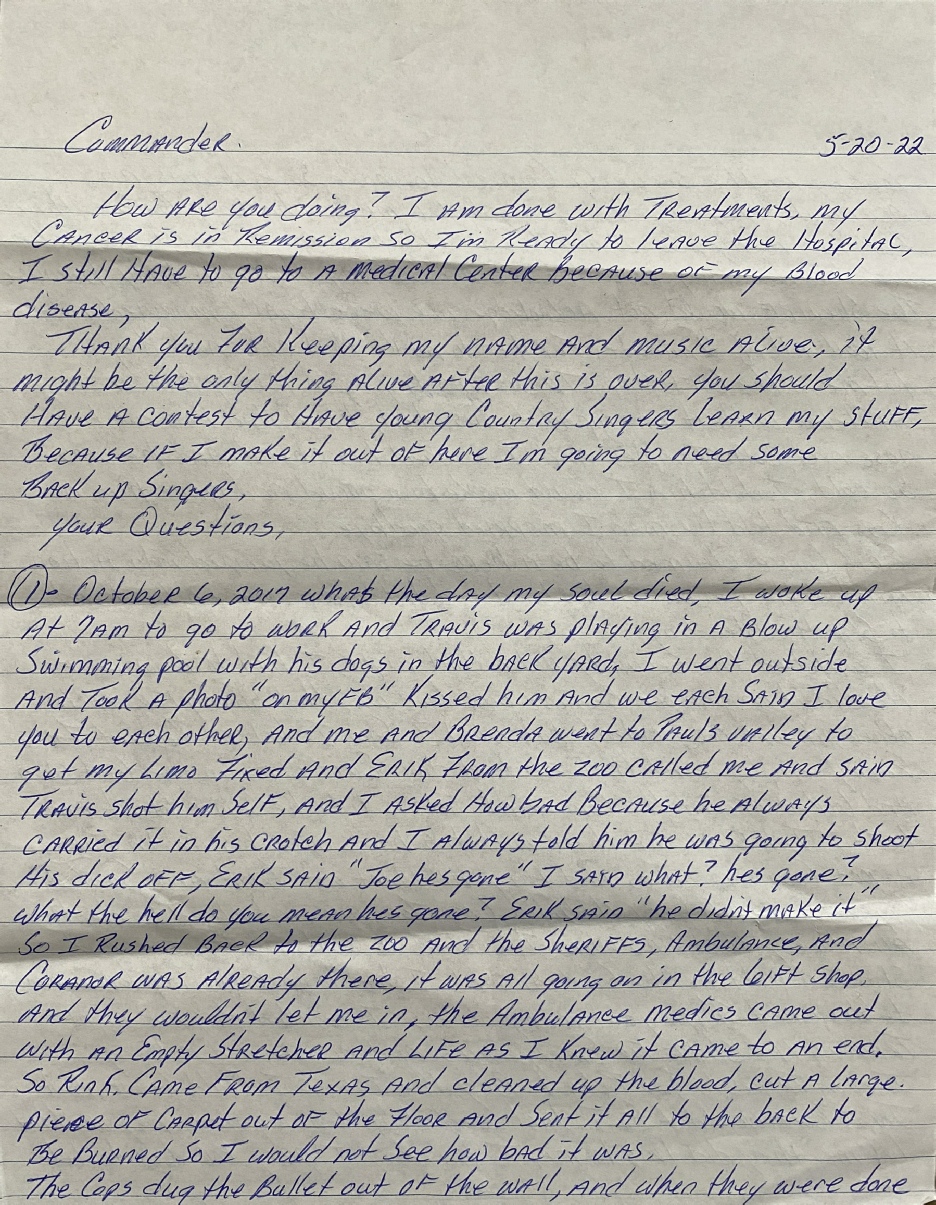 Commander. 5-20-22
How are you doing? I am done with Treatments, my
Cancer is in Remission so I'm Ready to leave the Hospital,
I still Have to go to a medical Center Because of my Blood
disease,
Thank you For Keeping my name and music Alive, it
might be the only thing Alive After this is over, you should
Have a contest to Have young Country Singers Learn my stuff,
Because if I make it out of here I'm going to need some
Back up Singers,
your Questions,
①- October 6, 2017 whats the day my soul died, I woke up
At 7am to go to work and Travis was playing in a Blow up
Swimming pool with his dogs in the back yard, I went outside
And Took a photo "on my FB" Kissed him and we each said I love
you to each other, and me and Brenda went to Pauls valley to
get my Limo Fixed and Erik From the zoo called me and said
Travis shot him self, and I asked How bad Because he Always
carried it in his crotch and I always told him he was going to shoot
His dick off, Erik said "Joe hes gone" I said what? hes gone?
what the hell do you mean hes gone? Erik said "he didn't make it"
So I Rushed Back to the zoo and the Sheriffs, Ambulance, and
Coranor was Already there, it was all going on in the Gift Shop.
And they wouldn't let me in, the Ambulance medics came out
with an Empty Stretcher and Life as I Knew it came to an end.
So Rink. Came From Texas, and cleaned up the blood, cut a large.
piece of Carpet out of the Floor and Sent it All to the back to
Be Burned So I would not See how bad it was.
The Cops dug the Bullet out of the wall, and when they were done